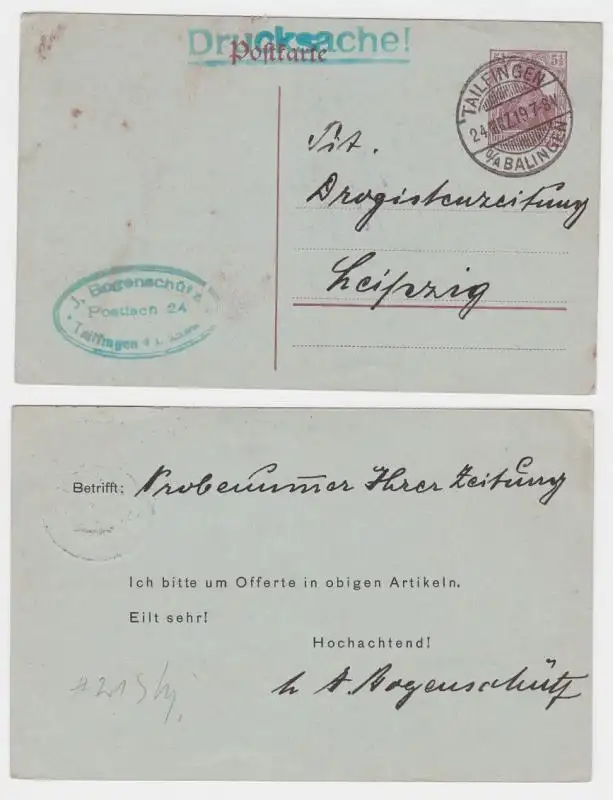 Drucksache!
Postkarte
5½ 5½
TAILFINGEN
24 7-8N
O/A BALINGEN
Tit.
Drogistenzeitung
Leipzig
J. Bogenschütz
Postfach 24
Tailfingen
Betrifft: Probenummer Ihrer Zeitung
Ich bitte um Offerte in obigen Artikeln.
Eilt sehr!
Hochachtend!
Bogenschütz